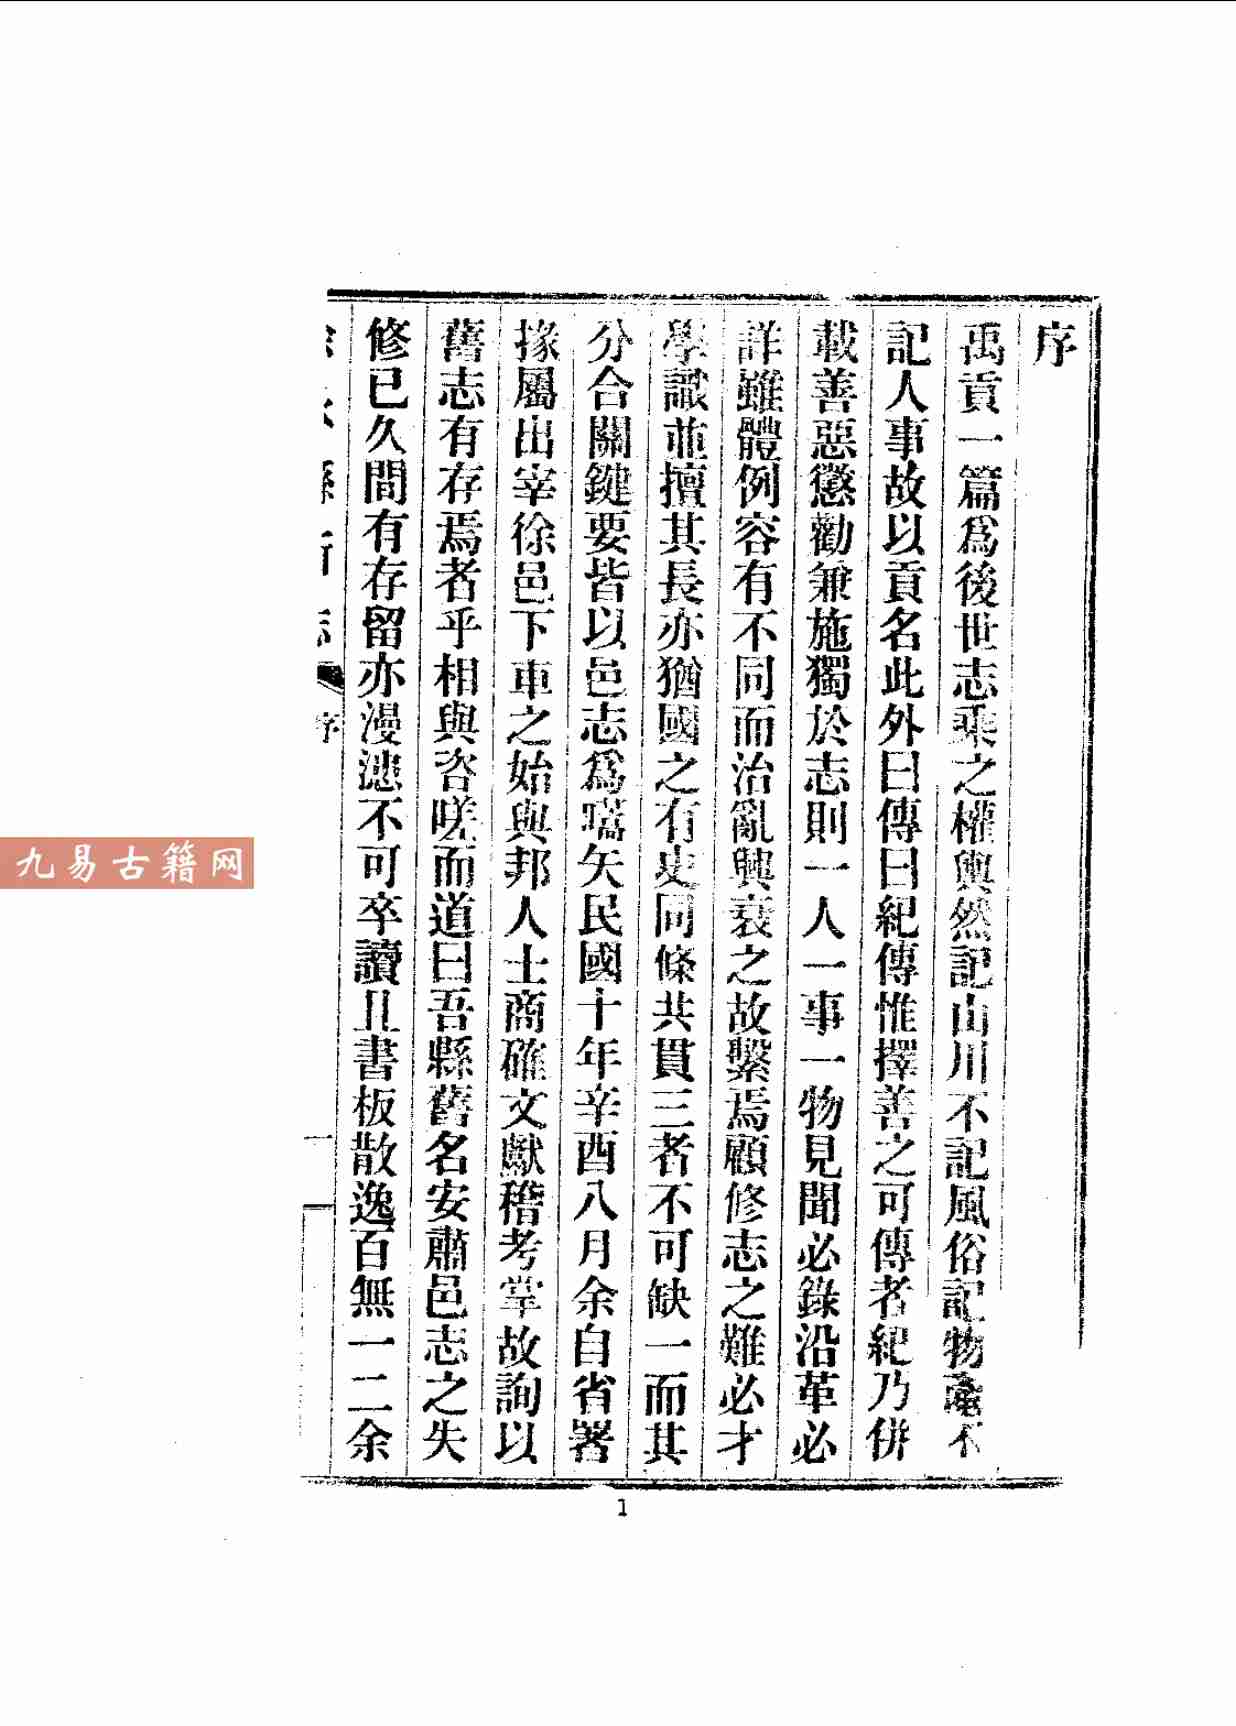 序
禹貢一篇爲後世志乘之權輿然記山川不記風俗記物產不
記人事故以貢名此外曰傳曰紀傳惟擇善之可傳者紀乃併
載善惡懲勸兼施獨於志則一人一事一物見聞必錄沿革必
詳雖體例容有不同而治亂興衰之故繫焉顧修志之難必才
學識並擅其長亦猶國之有史同條共貫三者不可缺一而其
分合關鍵要皆以邑志爲嚆矢民國十年辛酉八月余自省署
掾屬出宰徐邑下車之始與邦人士商確文獻稽考掌故詢以
舊志有存焉者乎相與咨嗟而道曰吾縣舊名安肅邑志之失
修已久間有存留亦漫漶不可卒讀且書板散逸百無一二余
縣新志
序
一
1
九易古籍网